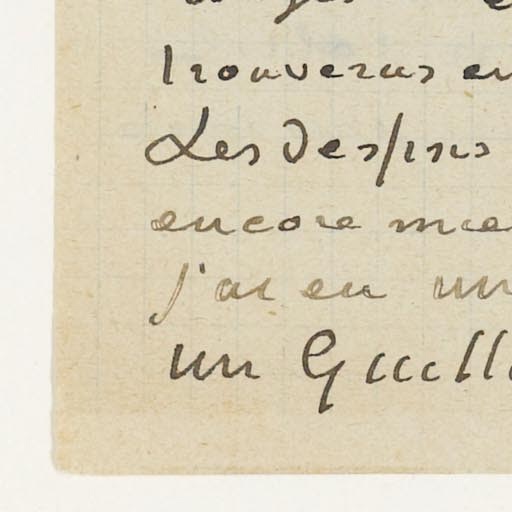 trouveras en
Les dessins
encore
j'ai eu un
un Guill